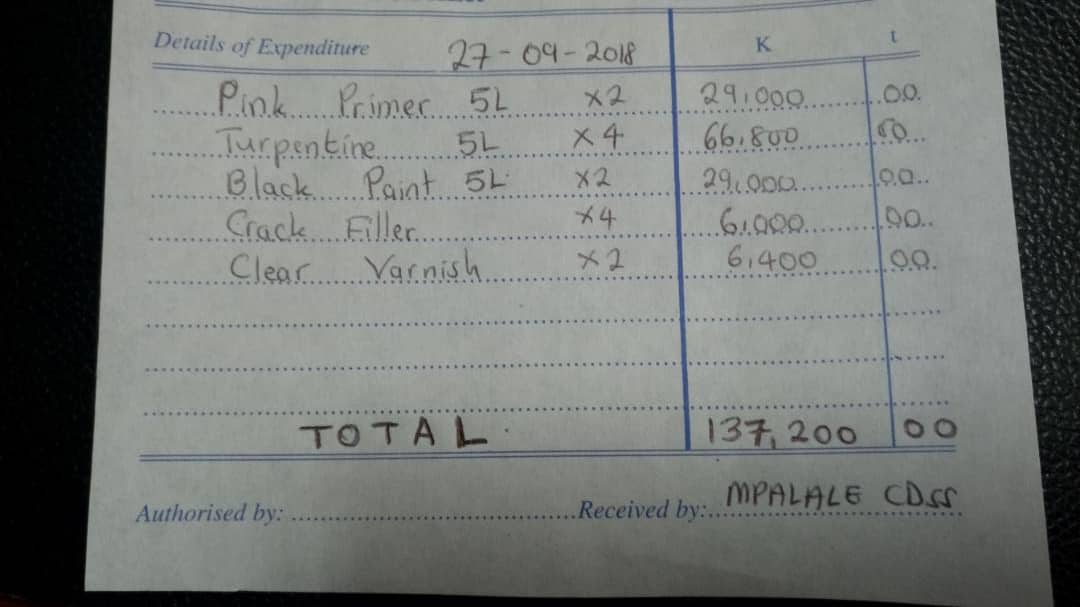 Details of Expenditure 27-09-2018 K t
Pink Primer 5L x2 29,000 00
Turpentine 5L x4 66,800 00
Black Paint 5L x2 29,000 00
Crack Filler x4 6,000 00
Clear Varnish x2 6,400 00
TOTAL 137,200 00
Authorised by: Received by: MPALALE CDSS